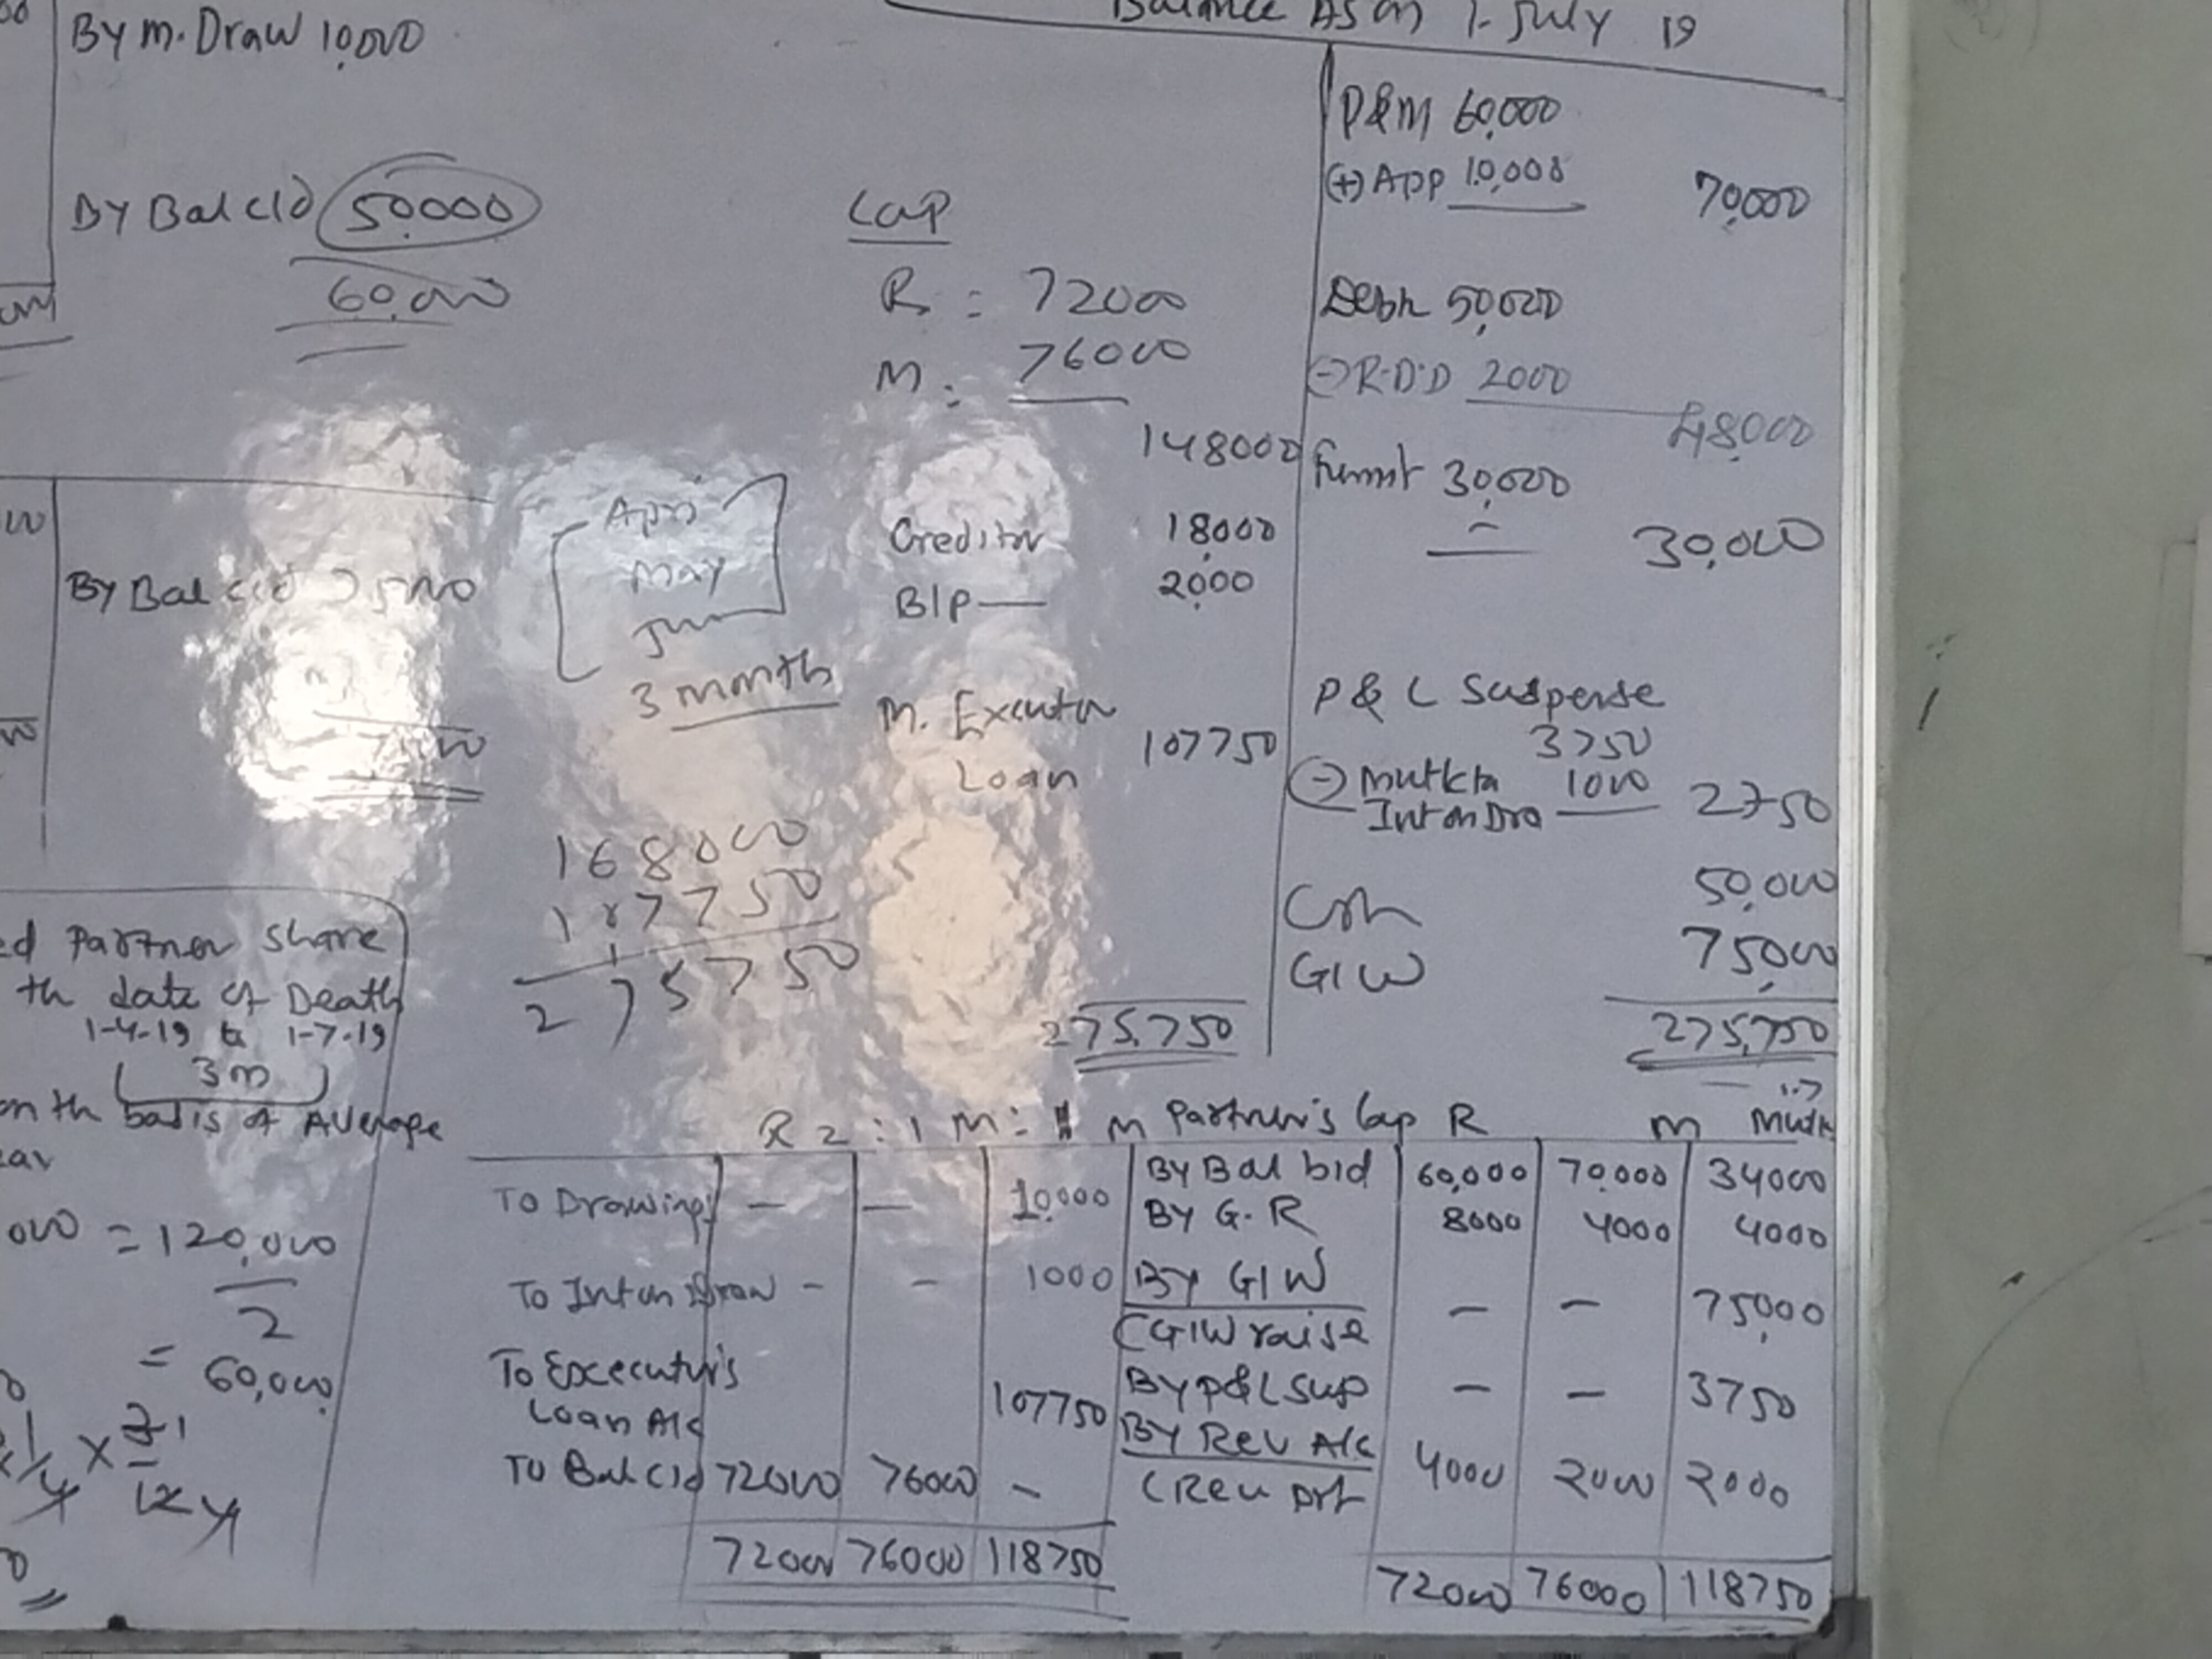 By M. Draw 10,000
By Bal c/d 50,000
60,000
By Bal c/d
Apri
May
Jun
3 month
168000
107750
275750
Partner share
th date of Death
1-4-19 to 1-7-19
3m
on th basis of Average
= 120,000
2
= 60,000
Balance As on 1-July 19
Cap
R : 72000
M : 76000
148000
Creditor 18000
B/P — 2000
M. Executor
Loan 107750
275,750
P&M 60,000
(+) App 10,000 70,000
Debtr 50,000
(-) R.D.D 2000 48,000
Furnit 30,000
- 30,000
P & L Suspense
3750
(-) Mutkta 1000
Int on Dra 2750
Csh 50,000
G/W 75,000
275,750
R 2 : 1 M : 1 M Partner's Cap R M Mutk
To Drawings — — 10,000 By Bal b/d 60,000 70,000 34000
By G.R 8000 4000 4000
To Int on Draw - - 1000 By G/W — — 75,000
(G/W raise
To Excecutor's
Loan A/c 107750 By P&L Sup — — 3750
By Rev A/c
To Bal c/d 72000 76000 - (Rev prf 4000 2000 2000
72000 76000 118750 72000 76000 118750